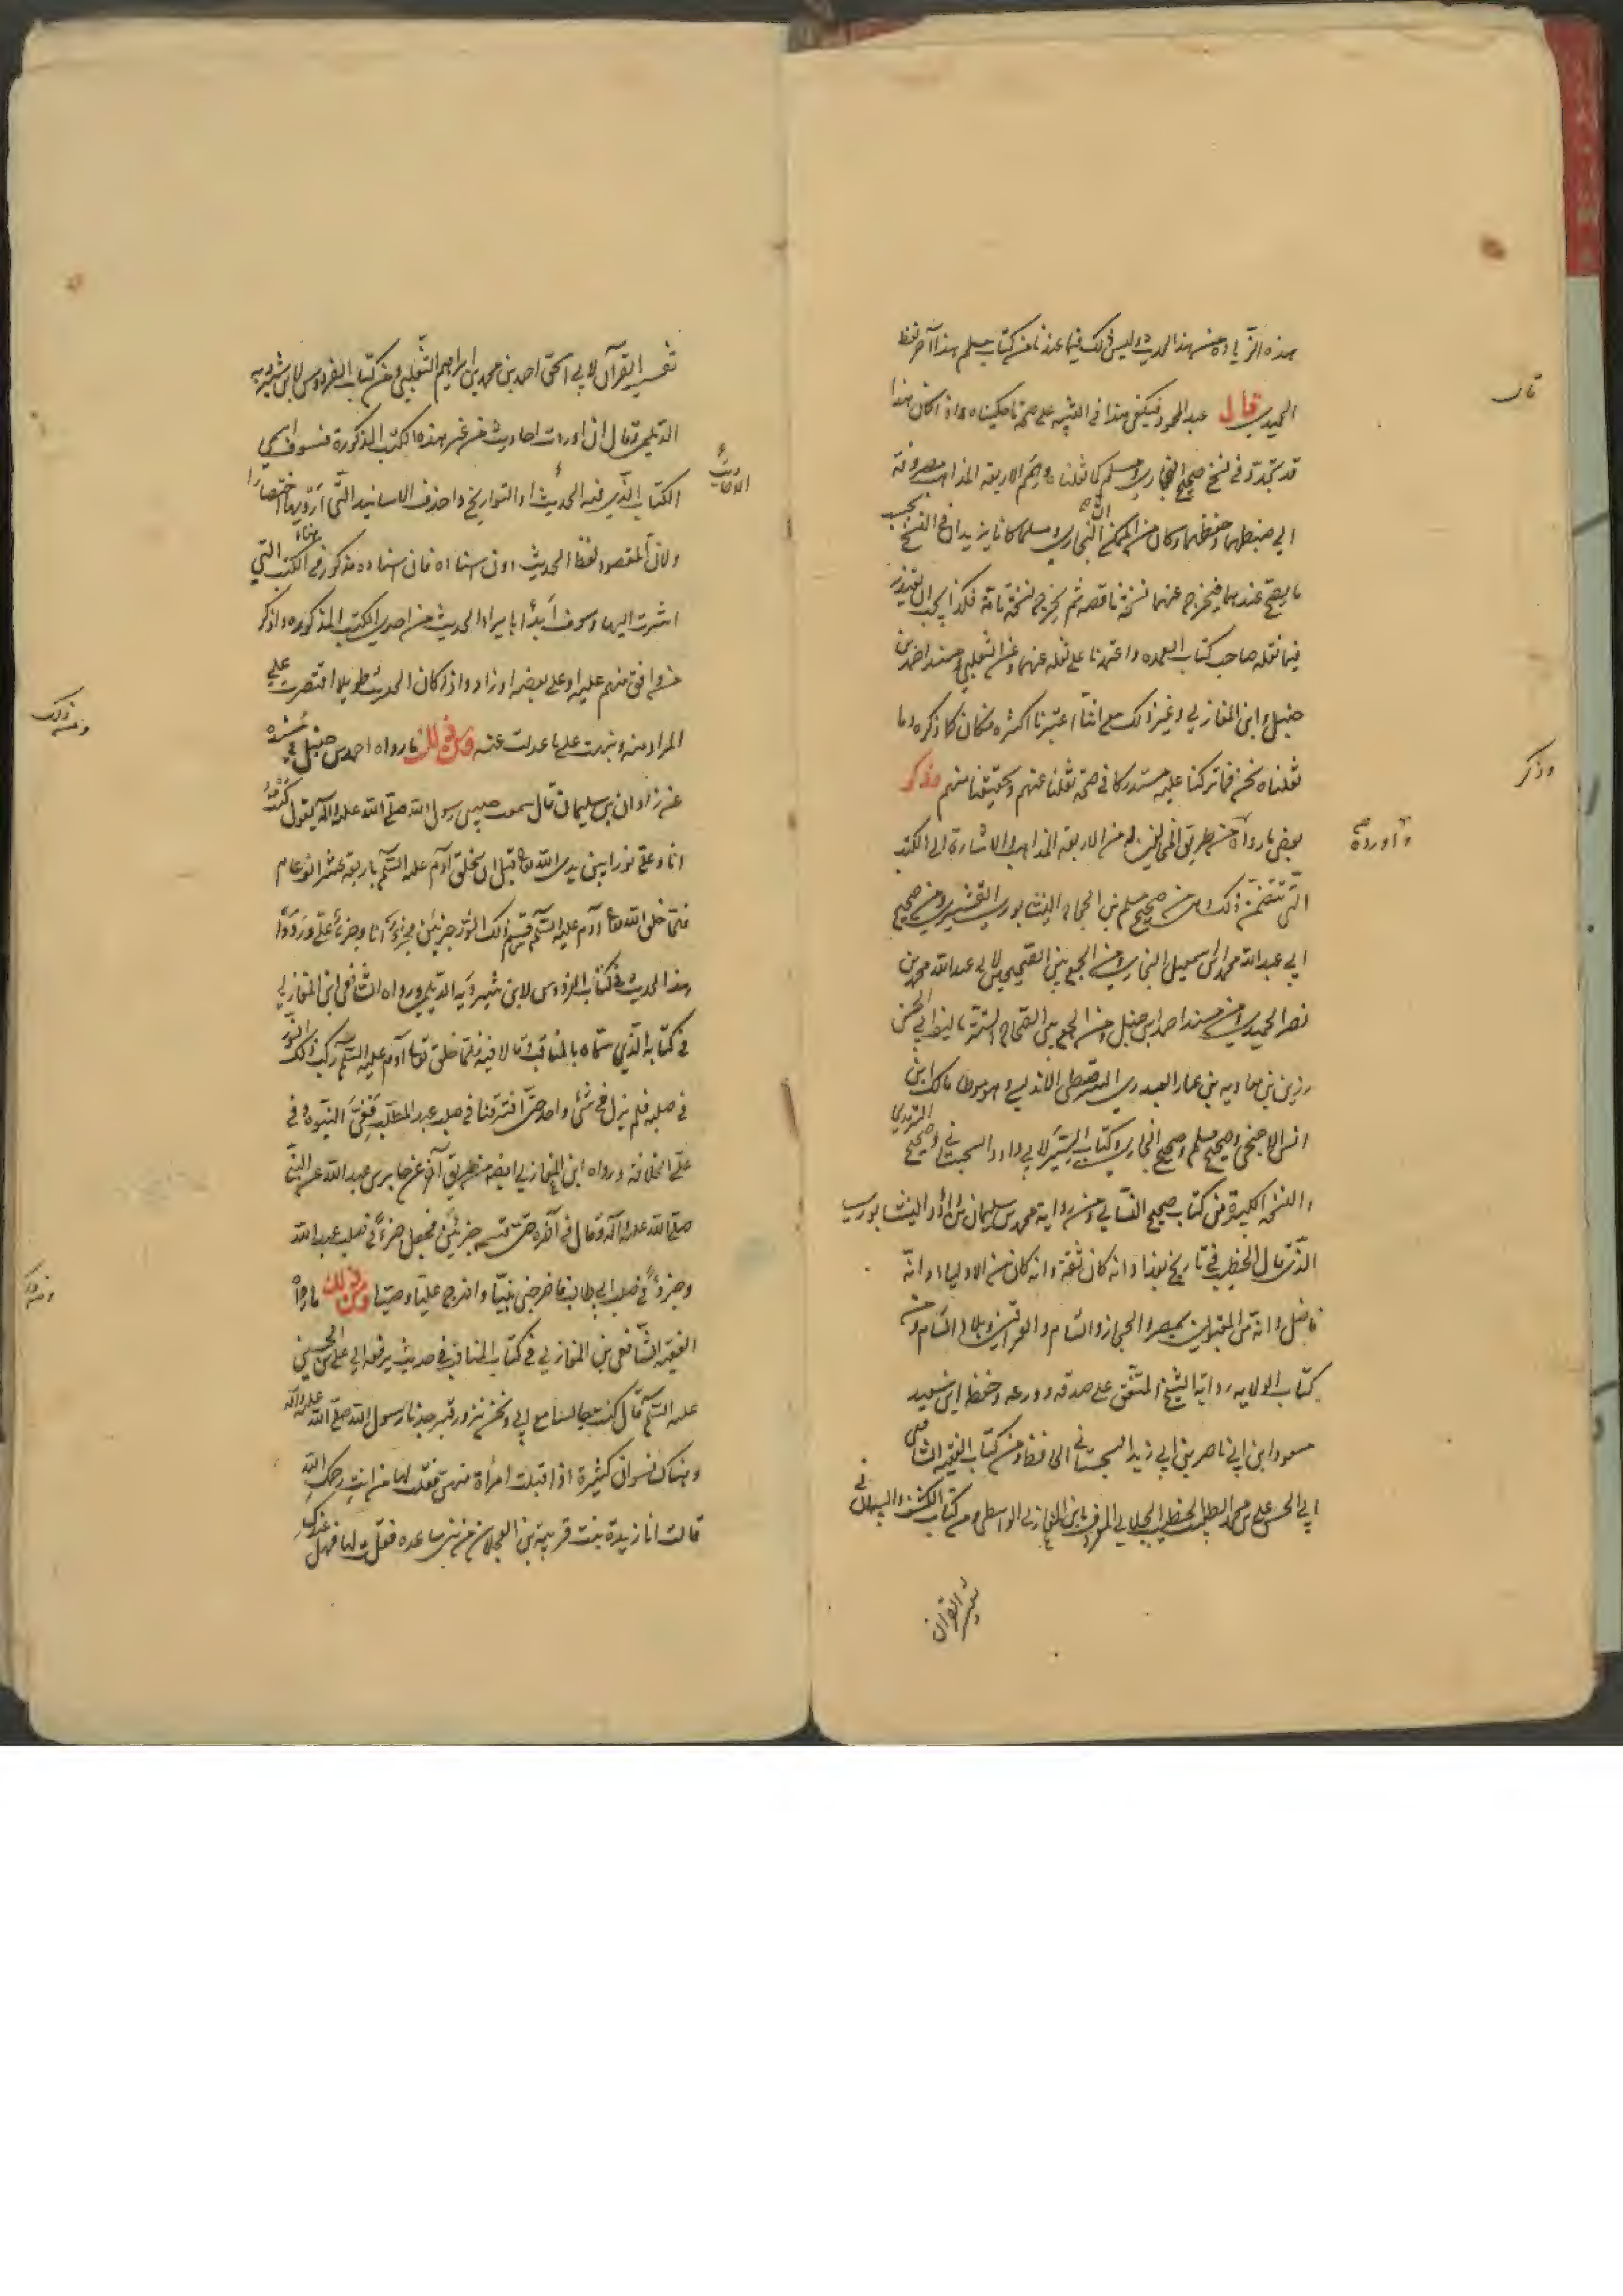 هذه الزيادة من هذا الحديث وليس ذلك فيما عندنا من كتاب مسلم هذا آخر لفظ
الحميدي قال عبد المحمود فيكفي هذا في التنبيه على صحة ما حكيناه واذا كان هذا
قد تجدد في نسخ صحيح البخاري ومسلم كما نقلناه وهمم الاربعة المذاهب مصروفة
الى ضبطهما وحفظهما وكان من الممكن ان البخاري ومسلما كانا يزيدان في النسخ بحسب
ما يصح عندهما فيخرج عنهما نسخة ناقصة ثم يخرج نسخة تامة فكذا يجب ان يعتذر
فيما نقله صاحب كتاب العمدة واعتمدنا على نقله عنهما وعن الثعلبي ومسند احمد بن
حنبل وابن المغازلي وغير ذلك مع اننا اعتبرنا اكثره فكان كما ذكره وما
نقلناه نحن فما تركنا عليه مستدركا في صحة نقلنا عنهم وتحقيقنا منهم وذكر
بعض ما رواه من طريق المخالفين له من الاربعة المذاهب والاشارة الى الكتب
التي تتضمن ذلك من صحيح مسلم بن الحجاج النيشابوري القشيري ومن صحيح
ابي عبد الله محمد بن اسمعيل البخاري ومن الجمع بين الصحيحين لابي عبد الله محمد بن
نصر الحميدي ومن مسند احمد بن حنبل ومن الجمع بين الصحاح الستة تاليف ابي الحسن
رزين بن معاوية بن عمار العبدري السرقسطي الاندلسي وهو موطا مالك ابن
انس الاصبحي وصحيح مسلم وصحيح البخاري وكتاب السنن لابي داود السجستاني وصحيح الترمذي
والنسخة الكبيرة من كتاب صحيح النسائي ومن رواية محمد بن سليمان بن داود النيشابوري
الذي قال الخطيب في تاريخ بغداد انه كان ثقة وانه كان من الاولياء وانه
فاضل وانه من المقبولين بمصر والحجاز والشام والعراقين وبلاد الشام ومن
كتاب الولاية رواية الشيخ المتفق على صدقه وورعه وحفظه ابي سعيد
مسعود ابن ابي ناصر بن ابي زيد السجستاني الحافظ ومن كتاب الفقيه الشافعي
ابي الحسن علي بن محمد الطيب الخطيب الجلابي المعروف بابن المغازلي الواسطي ومن كتاب الكشف والبيان في
تفسير القرآن
قال
وذكر
واورده
تفسير القرآن لابي اسحق احمد بن محمد بن ابراهيم الثعلبي ومن كتاب الفردوس لابن شيرويه
الديلمي وقال ان اوردت احاديث من غير هذه الكتب المذكورة فسوف اسمي
الكتاب الذي فيه الحديث او التواريخ واحذف الاسانيد التي ارويها اختصارا
ولان المقصود لفظ الحديث دون اسناده فان اسناده مذكور في الكتب التي
اشرت اليها وسوف أبدأ بايراد الحديث من احدى الكتب المذكورة واذكر
من وافق منهم عليه او على بعضه او زاد واذا كان الحديث طويلا اقتصرت على
المراد منه ونبهت على ما عدلت عنه ومن ذلك ما رواه احمد بن حنبل في مسنده
عن زاذان بن سليمان قال سمعت حبيبي رسول الله صلى الله عليه وآله يقول كنت
انا وعلي نورا بين يدي الله تعالى قبل ان يخلق آدم عليه السلم باربعة عشر الف عام
فلما خلق الله تعالى آدم عليه السلم قسم ذلك النور جزئين فجزؤ انا وجزؤ علي وروى
هذا الحديث في كتاب الفردوس لابن شيرويه الديلمي ورواه الشافعي ابن المغازلي
في كتابه الذي سماه بالمناقب وقال فيه فلما خلق تعالى آدم عليه السلم ركب ذلك النور
في صلبه فلم يزل في شئ واحد حتى افترقنا في صلب عبد المطلب ففيّ النبوة وفي
علي الخلافة ورواه ابن المغازلي ايضا من طريق آخر عن جابر بن عبد الله عن النبي
صلى الله عليه وآله وقال في آخره حتى قسمه جزئين فجعل جزءا في صلب عبد الله
وجزءا في صلب ابي طالب فاخرجني نبيا واخرج عليا وصيا ومن ذلك ما رواه
الفقيه الشافعي بن المغازلي في كتاب المناقب في حديث يرفعه الى علي بن الحسين
عليه السلم قال كنت جالسا مع ابي ونحن نزور قبر جدنا رسول الله صلى الله عليه وآله
وهناك نسوان كثيرة اذ اقبلت امرأة منهن فقلت لها من انت رحمك الله
قالت انا زيدة بنت قريبة بن العجلان من بني ساعدة فقلت لها فهل عندك
ومن ذلك
ومن ذلك